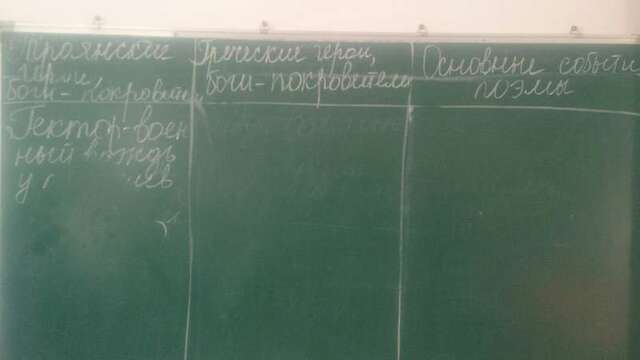 Троянские
герои,
Боги-покровители
Греческие герои,
боги-покровители
Основные события
поэмы
Гектор-воен
ный вождь
у